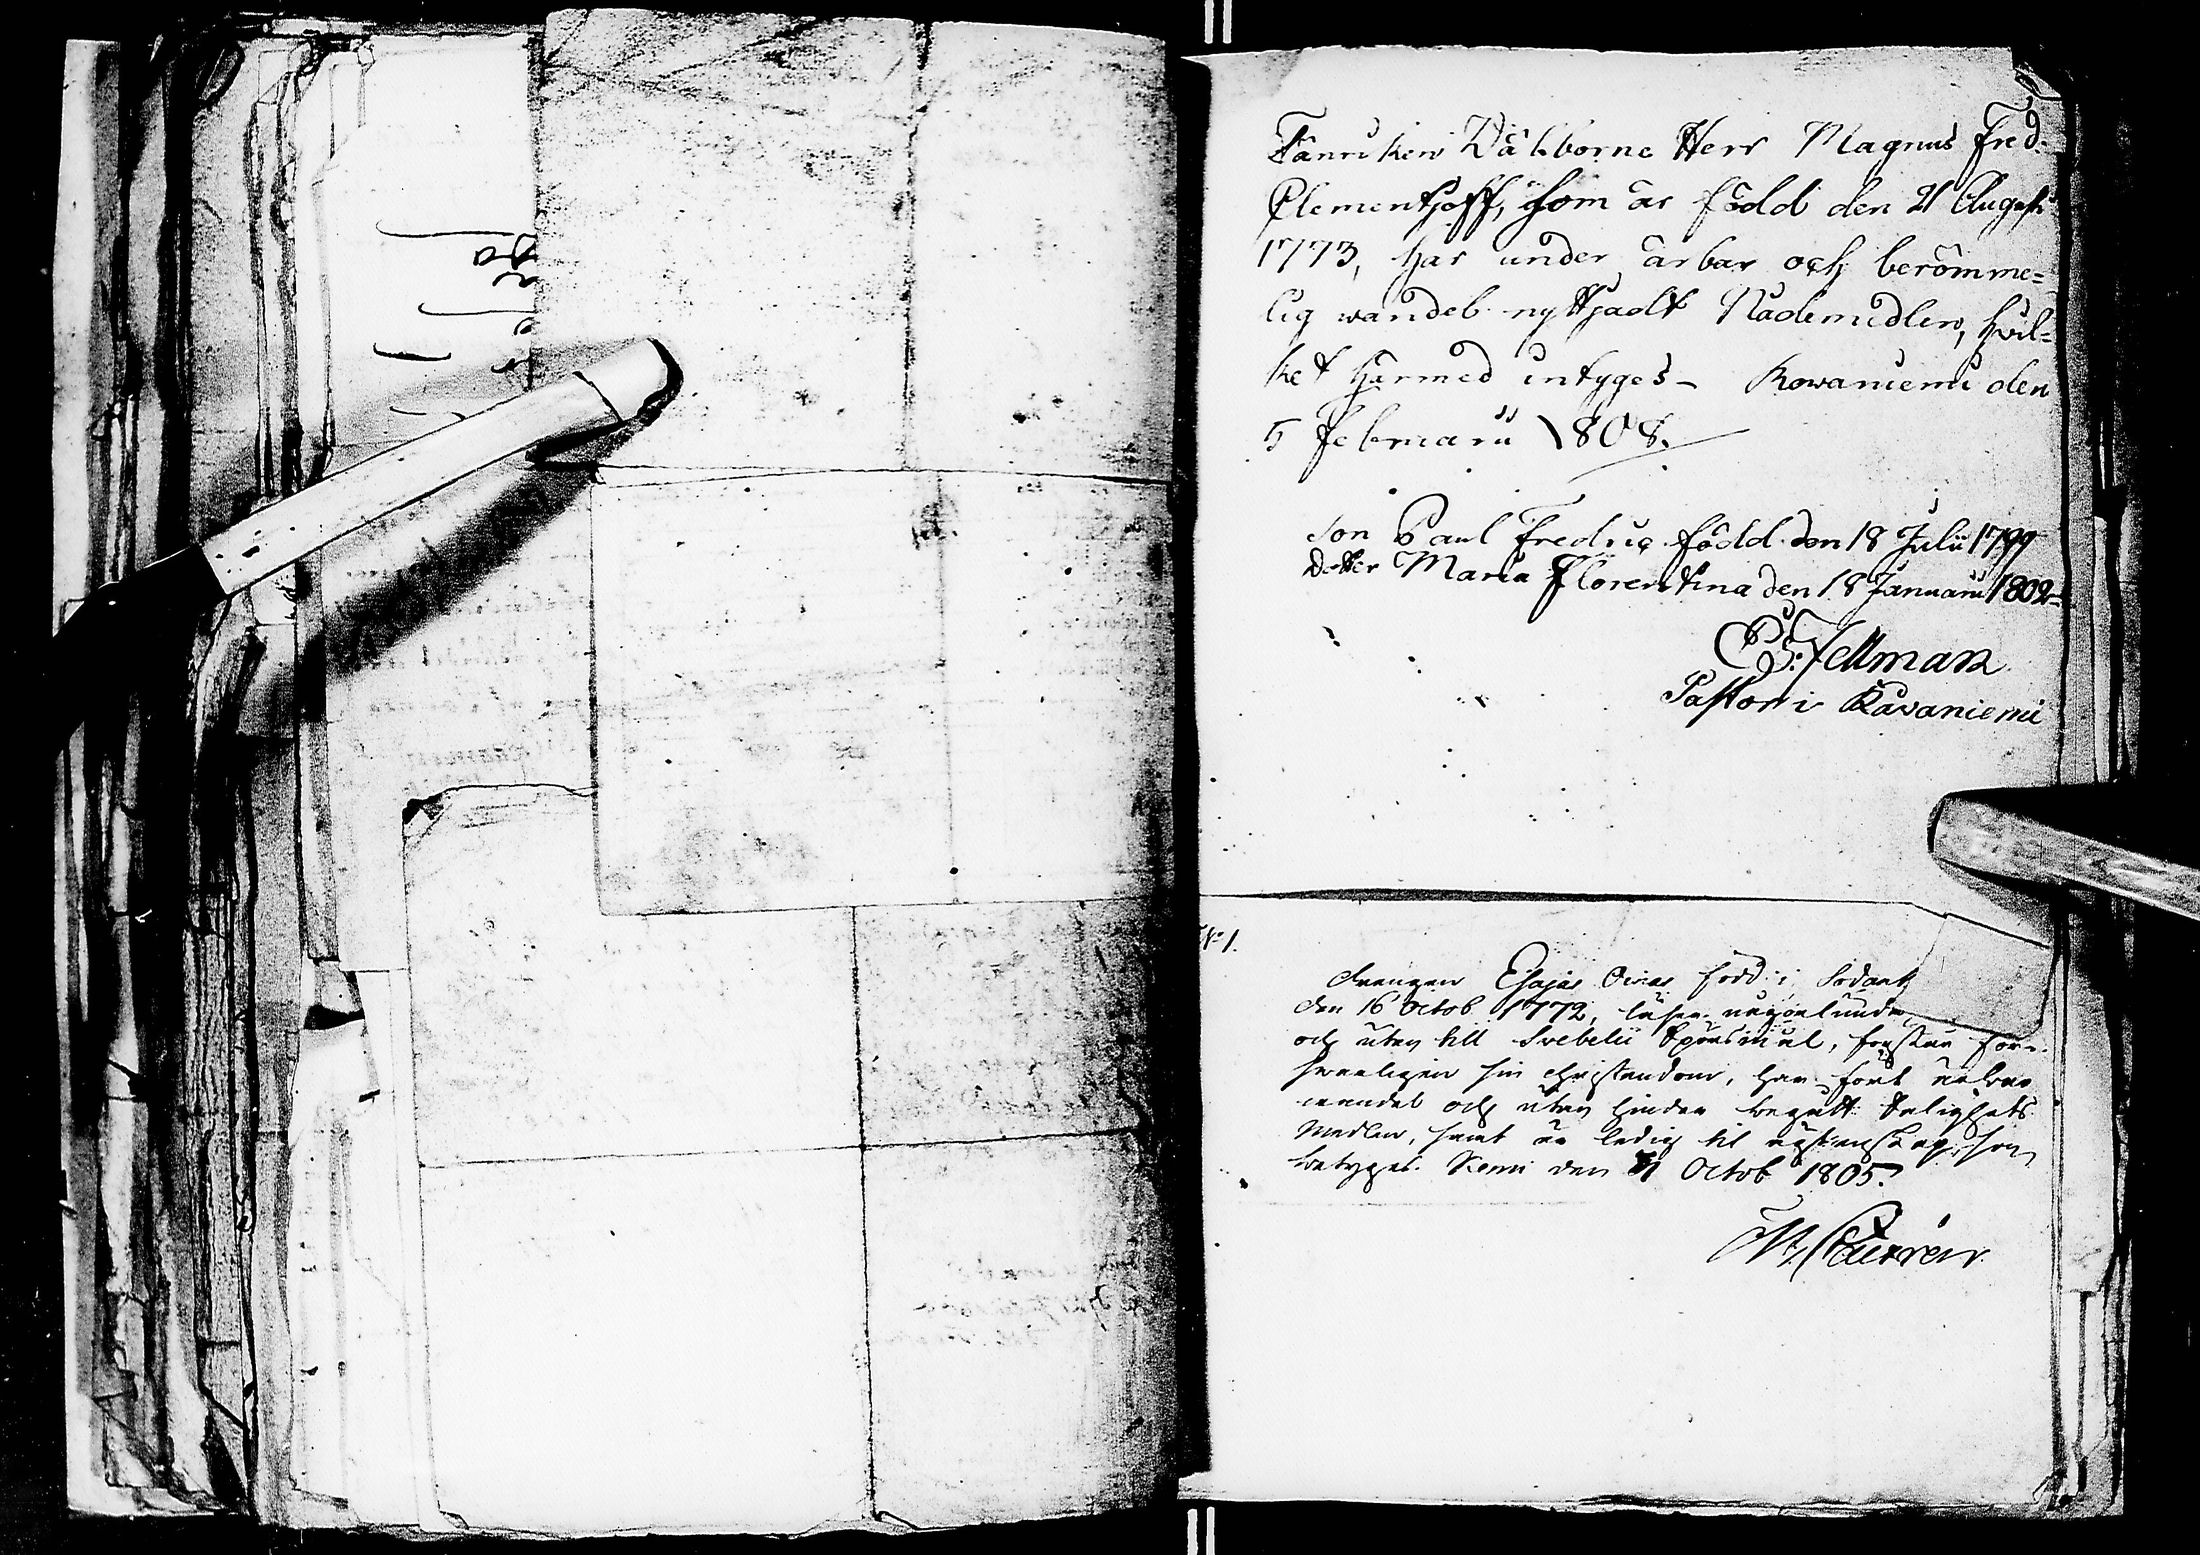 Fänriken Wälborne Herr Magnus Fred:
Clementhoff, som är född den 21 Augusti
1773, har under ärbar och berömme=
lig wandel nyttjadt Nådemedlen, hvil=
ket härmed intyges – Rowaniemi den
5 Februarii 1808.
Son Paul Fredric född den 18 Julii 1799
Dotter Maria Florentina den 18 Januarii 1802
Fellman
Pastor i Råvaniemi
No 1.
Drengen Esajas Oinas född i Sodank
den 16 Octob 1772, läser någorlunda
och utan till Svebelii Spörsmål, förstår för-
svarligen sin christendom, har fört ärbar
wandel och utan hinder begått Salighets
Medlen, samt är ledig til ägtenskap, som
betyges. Kemi den Octob 1805.
M. Castrén.